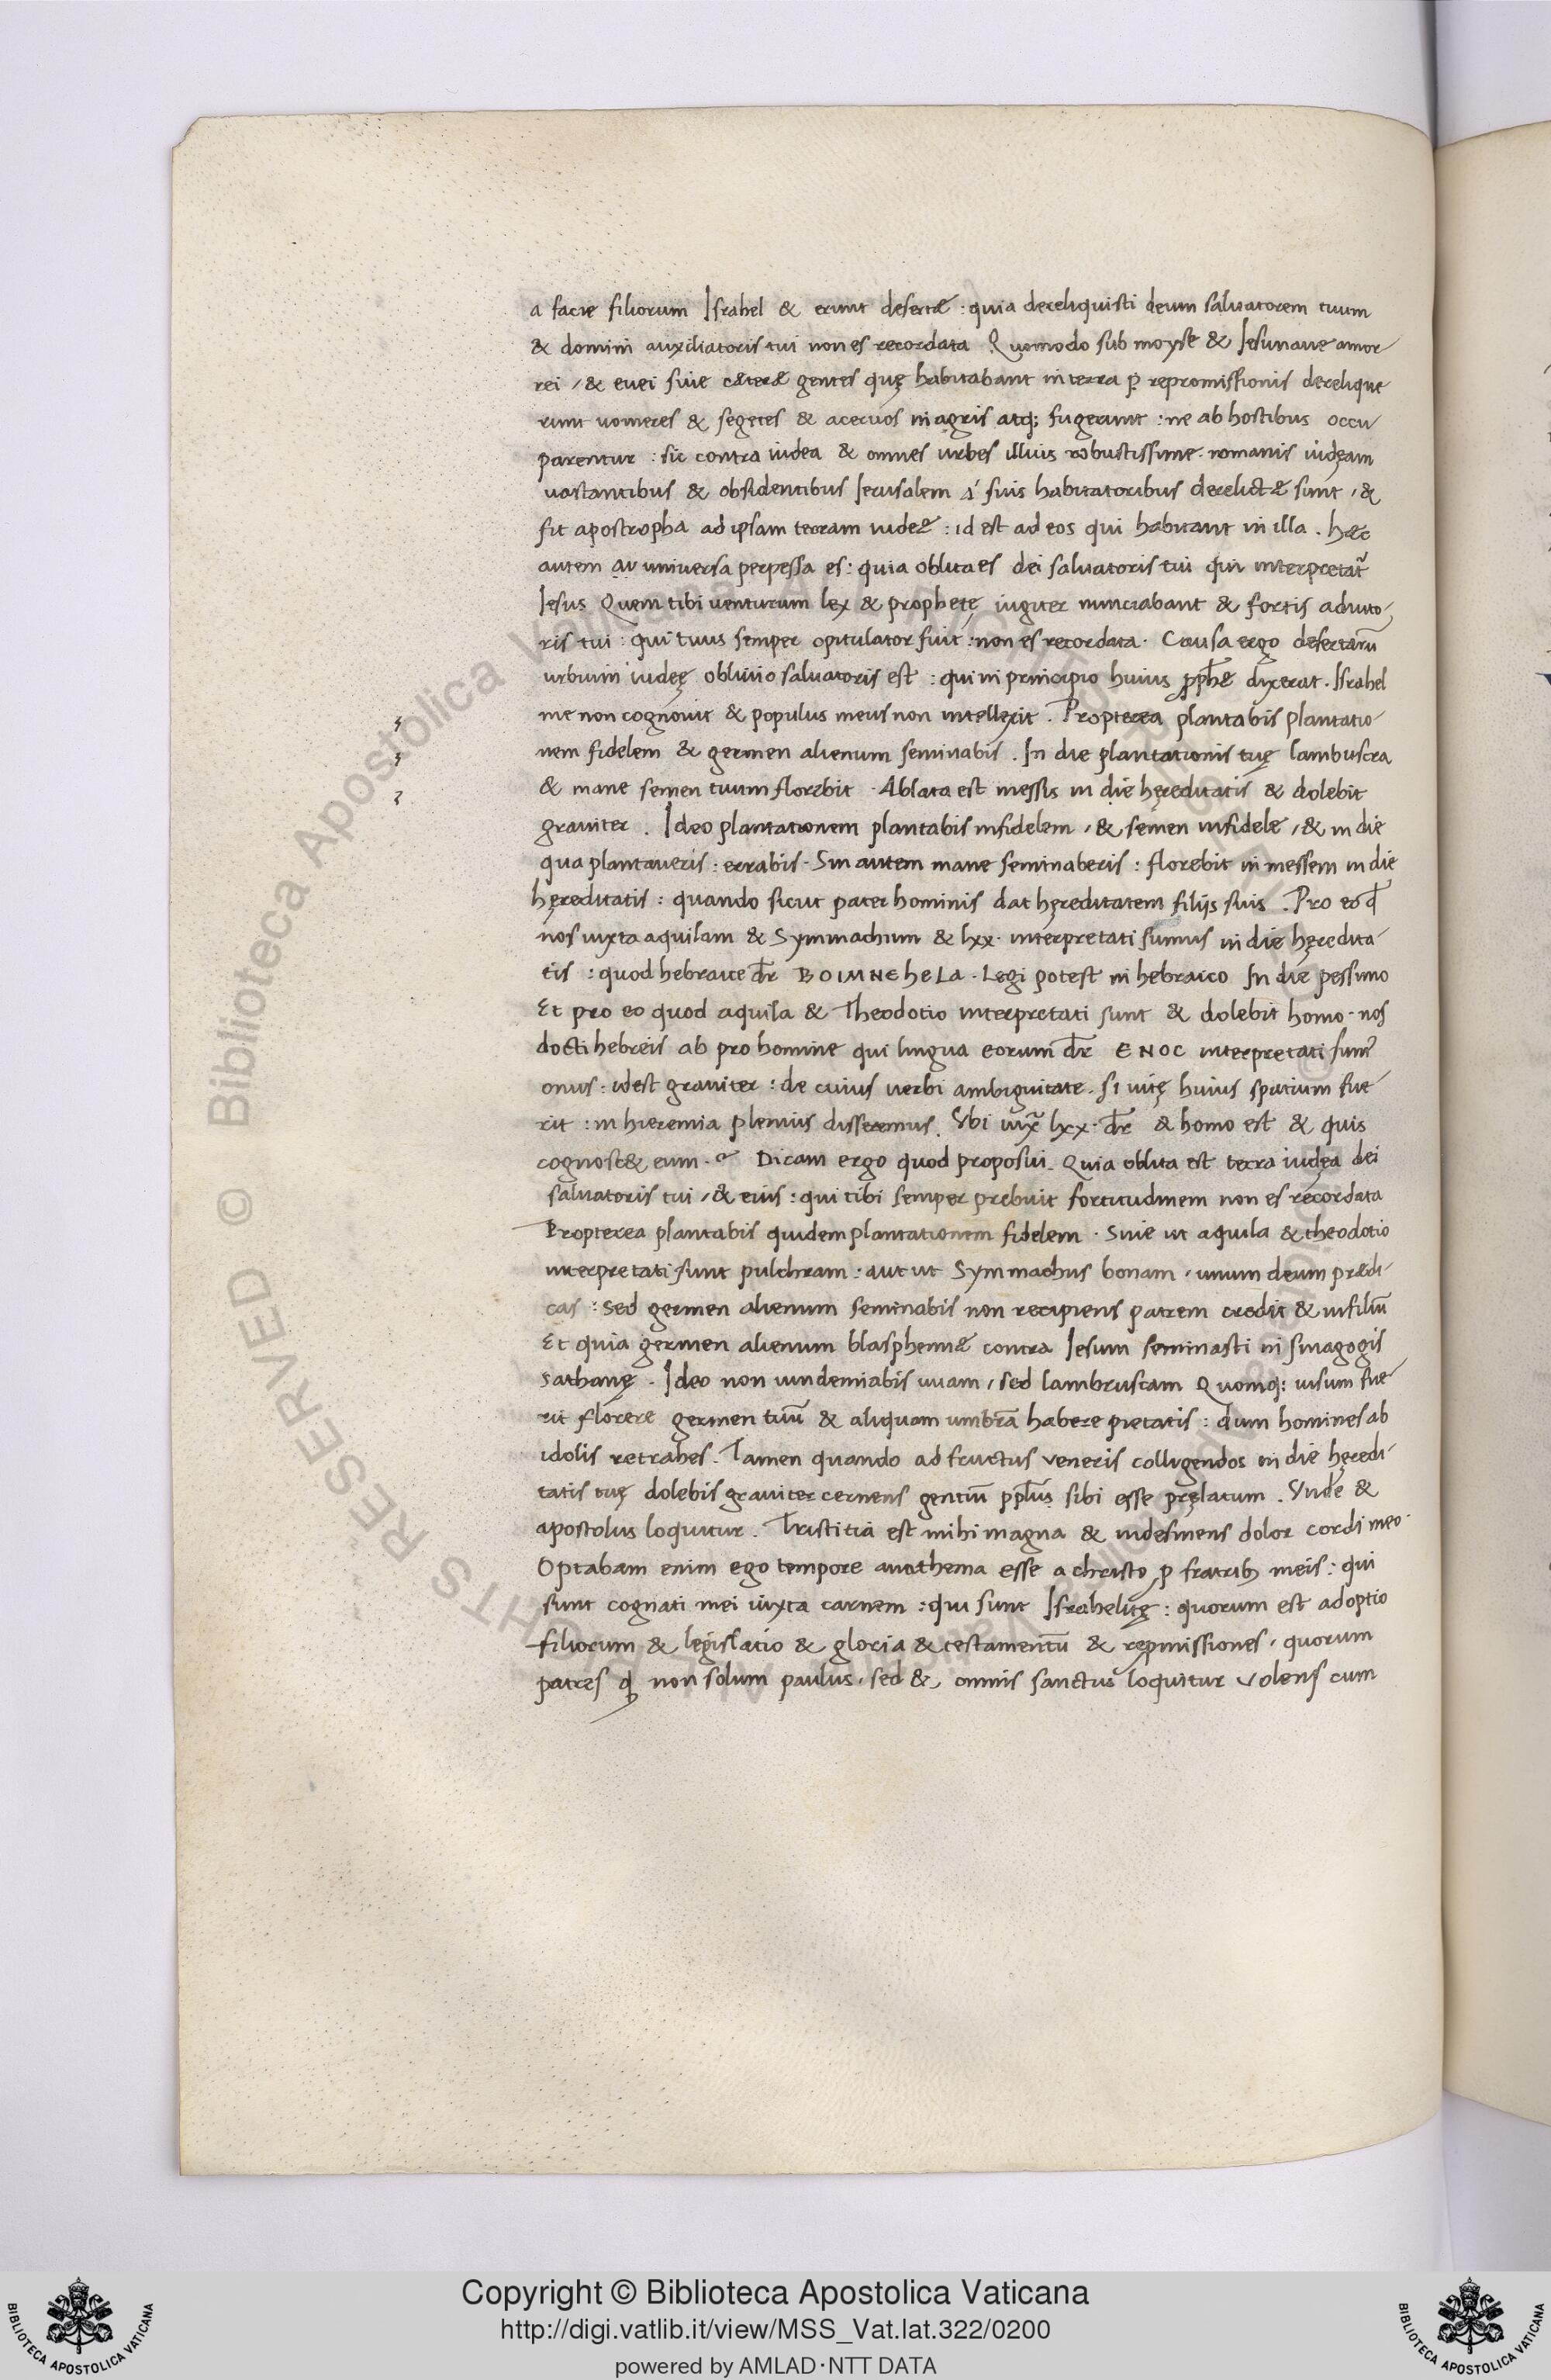 a facie filiorum Israhel & erunt desertæ : quia dereliquisti deum saluatorem tuum
& domini auxiliatoris tui non es recordata Quomodo sub moyse & Iesu naue amor
rei / & euei siue cæteræ gentes quę habitabant in terra ꝓ repromissionis derelique
runt uomeres & segetes & aceruos in agris atq; fugerunt : ne ab hostibus occu
parentur : sic contra iudea & omnes urbes illius robustissime . romanis iudęam
uastantibus & obsidentibus Ierusalem á suis habitatoribus derelictæ sunt , &
fit apostropha ad ipsam terram iudeæ : id est ad eos qui habitant in illa . hæc
autem universa perpessa es : quia oblita es dei saluatoris tui qui interpretat̃
Iesus Quem tibi venturum lex & prophetę iugiter nunciabant & fortis adiuto
ris tui : qui tuus semper opitulator fuit : non es recordata . Causa ergo desertarũ
urbium iudęę oblivio saluatoris est : qui in principio huius ꝓph̄æ dixerat . Israhel
me non cognouit & populus meus non intellexit . Propterea plantabis plantatio
nem fidelem & germen alienum seminabis . In die plantationis tuę lambuscra
& mane semen tuum florebit . Ablata est messis in die hęreditatis & dolebit
graviter . Ideo plantationem plantabis infidelem , & semen infidele , & in die
qua plantaueris : errabis . Sin autem mane seminaberis : florebit in messem in die
hęreditatis : quando sicut pater hominis dat hęreditatem filijs suis . Pro eo qđ
nos iuxta aquilam & Symmachum & lxx . interpretati sumus in die hęredita
tis : quod hebraice dr̄ BOIMNEheLa . Legi potest in hebraico In die pessimo
Et pro eo quod aquila & Theodotio interpretati sunt & dolebit homo . nos
docti hebreis ab pro homine qui lingua eorum dr̄ ENOC interpretati sum᾽
onus : idest graviter : de cuius uerbi ambiguitate . si uitę huius spatium fue
rit : in hieremia plenius disseremus . Vbi iux̃ lxx . dr̄ & homo est & quis
cognosc& eum . Dicam ergo quod proposui . Quia oblita est terra iudęa dei
saluatoris tui , & eius : qui tibi semper prebuit fortitudinem non es recordata
Propterea plantabis quidem plantationem fidelem . Siue ut aquila & theodotio
interpretati sunt pulchram : aut ut Symmachus bonam , unum deum prædi
cas : sed germen alienum seminabis non recipiens patrem credit & in filiũ
Et quia germen alienum blasphemiæ contra Iesum seminasti in sinagogis
sathanę . Ideo non uindemiabis uuam , sed lambruscam Quomq: uisum fue
rit florere germen tuũ & aliquam umbrã habere pietatis : dum homines ab
idolis retrahes . Tamen quando ad fructus veneris colligendos in die hęredi
tatis tuę dolebis graviter cernens gentiũ ppl̄us sibi esse pręlatum . Vnde &
apostolus loquitur . Tristitia est mihi magna & indesinens dolor cordi meo .
Optabam enim ego tempore anathema esse a christo ꝓ fratrib; meis : qui
sunt cognati mei iuxta carnem : qui sunt Israhelitę : quorum est adoptio
filiorum & legislatio & gloria & testamentũ & reꝓmissiones , quorum
patres qđ non solum paulus , sed & omnis sanctus loquitur volens cum
Copyright © Biblioteca Apostolica Vaticana
http://digi.vatlib.it/view/MSS_Vat.lat.322/0200
powered by AMLAD·NTT DATA
BIBLIOTECA APOSTOLICA VATICANA
BIBLIOTECA APOSTOLICA VATICANA